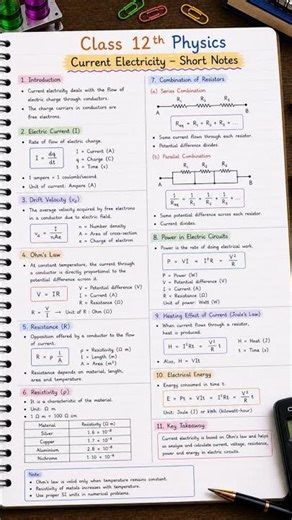 Class 12th Physics
Current Electricity – Short Notes
1. Introduction
• Current electricity deals with the flow of
electric charge through conductors.
• The charge carriers in conductors are
free electrons.
2. Electric Current (I)
• Rate of flow of electric charge.
I = dq/dt
I = Current (A)
q = Charge (C)
t = Time (s)
• 1 ampere = 1 coulomb/second
• Unit of current: Ampere (A)
3. Drift Velocity (vd)
• The average velocity acquired by free electrons
in a conductor due to electric field.
vd = I/nAe
n = Number density
A = Area of cross-section
e = Charge of electron
4. Ohm's Law
• At constant temperature, the current through
a conductor is directly proportional to the
potential difference across it.
V = IR
V = Potential difference (V)
I = Current (A)
R = Resistance (Ω)
R = V/I
Unit of R : Ohm (Ω)
5. Resistance (R)
• Opposition offered by a conductor to the flow
of current.
R = ρ l/A
ρ = Resistivity (Ω m)
l = Length (m)
A = Area (m²)
• Resistance depends on material, length,
area and temperature.
6. Resistivity (ρ)
• It is a characteristic of the material.
• Unit: Ω m
• 1 Ω m = 100 Ω cm
Material Resistivity (Ω m)
Silver 1.6 × 10⁻⁸
Copper 1.7 × 10⁻⁸
Aluminium 2.8 × 10⁻⁸
Nichrome
Note:
• Ohm's law is valid only when temperature remains constant.
• Resistivity of metals increases with temperature.
• Use proper SI units in numerical problems.
7. Combination of Resistors
(a) Series Combination
R₁ R₂ R₃
A B
Req = R₁ + R₂ + R₃ + ...
• Same current flows through each resistor.
• Potential difference divides.
(b) Parallel Combination
R₁ R₂ R₃
A B
1/Req = 1/R₁ + 1/R₂ + 1/R₃ + ...
• Same potential difference across each resistor.
• Current divides.
8. Power in Electric Circuits
• Power is the rate of doing electrical work.
P = VI = I²R = V²/R
P = Power (W)
V = Potential difference (V)
I = Current (A)
R = Resistance (Ω)
Unit of power: Watt (W)
9. Heating Effect of Current (Joule's Law)
• When current flows through a resistor,
heat is produced.
H = I²Rt = V²/R t
H = Heat (J)
t = Time (s)
• Also, H = VIt
10. Electrical Energy
• Energy consumed in time t.
E = Pt = VIt = I²Rt = V²/R t
Unit: Joule (J) or kWh (kilowatt-hour)
11. Key Takeaway
Current electricity is based on Ohm's law and helps
us analyze and calculate current, voltage, resistance,
power and energy in electric circuits.